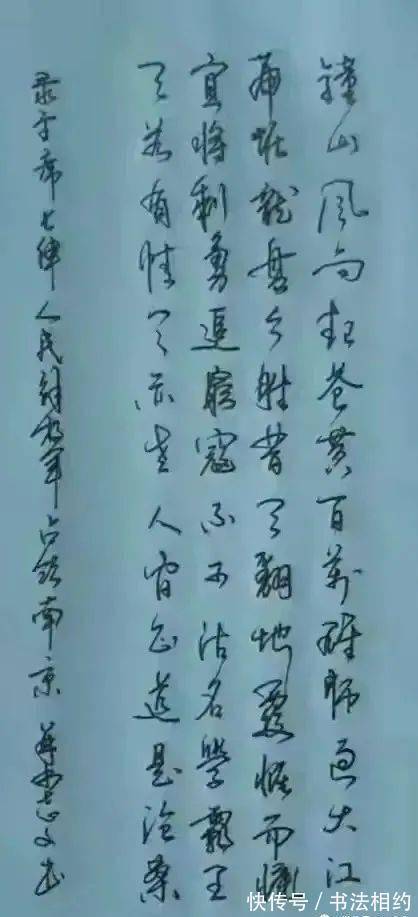 鐘山風雨起苍黄百萬雄師過大江
虎踞龍盤今勝昔天翻地覆慨而慷
宜將剩勇追窮寇不可沽名學霸王
天若有情天亦老人間正道是滄桑
录主席七律人民解放軍占領南京
快传号 / 书法相约